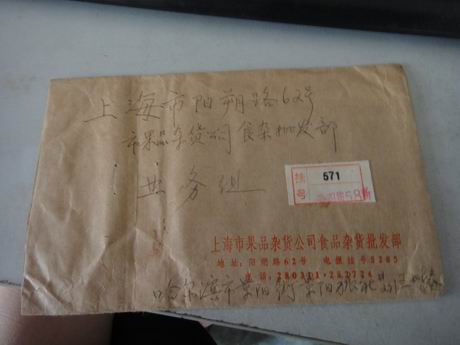 上海市阳朔路62号
市果品杂货公司食杂批发部
业务组
挂号
571
上海市果品杂货公司食品杂货批发部
地址:阳朔路62号 电报挂号5205
电话:280311·282724
哈尔滨市景阳街景阳旅社